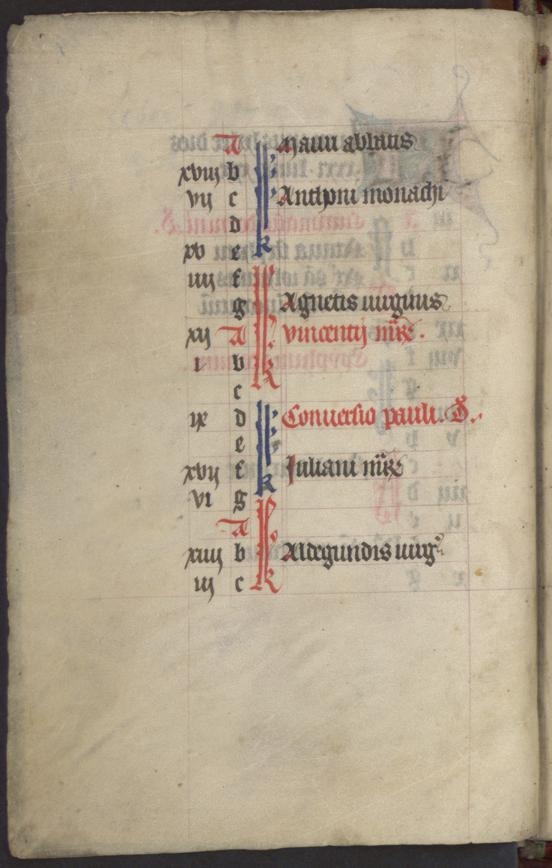 A kl Mauri abbatis
xviij b
vij c Anthoni monachi
d
xv e
iiij f kl
g Agnetis uirginis
xij A vincentij mr̄is.
i b
c
ix d kl Conuersio pauli. d.
e
xvij f Juliani mr̄is
vi g kl
A
xiiij b Aldegundis uirg
iij c